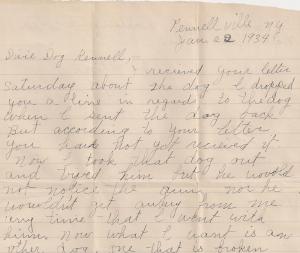 Pennellville N.Y.
Jan 22 1934
Dixie Dog Kennell,
I recieved your letter
Saturday about the dog I droped
you a line in regard to the dog
when I sent the dog back
But according to your letter
you have not yet recieved it.
Now I took that dog out
and tryed him but he would
not notice the gun, nor he
wouldn't get away from me
any time that I went with
him. Now what I want is an
other dog one that is broken